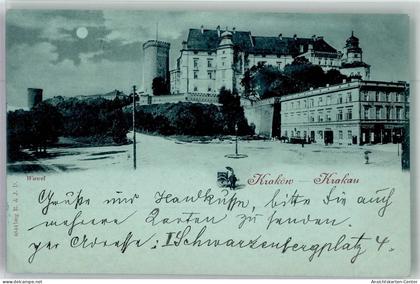 Wawel
Kraków — Krakau
Grüße und Handküsse, bitte Sie auch
mehrere Karten zu senden.
per Adresse: I Schwarzenbergplatz 4.
Ansichtskarten-Center